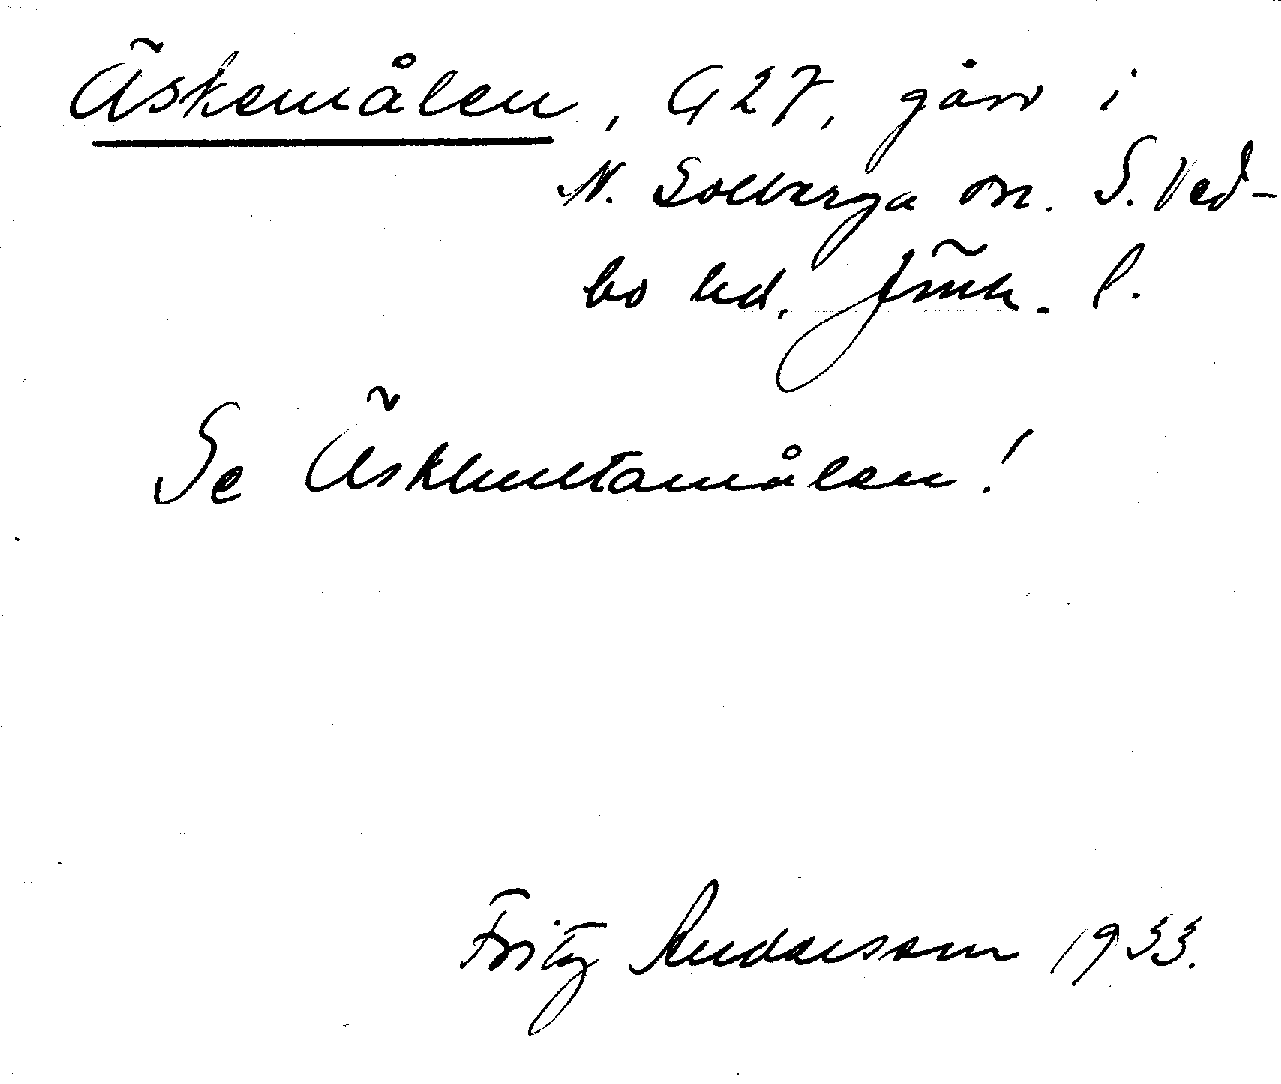 Äskemålen, G27, gård i
N. Solberga sn. S. Ved-
bo hd. Jönk. l.
Se Äskhultamålen!
Fritz Andersson 1933.